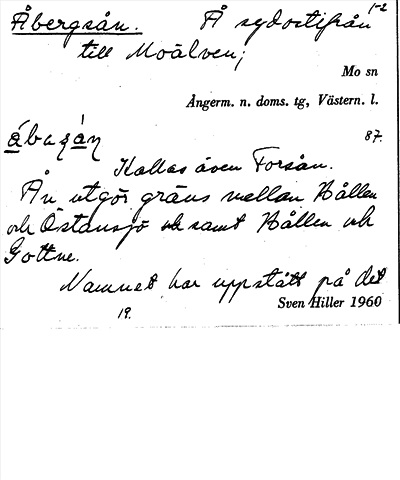 Åbergsån. Å sydostifrån 1-2
till Moälven;
Mo sn
Ångerm. n. doms. tg, Västern. l.
87.
Kallas även Forsån.
Ån utgör gräns mellan Hållen
och Östansjö och samt Hållen och
Gottne.
Namnet har uppstått på det
Sven Hiller 1960
19.